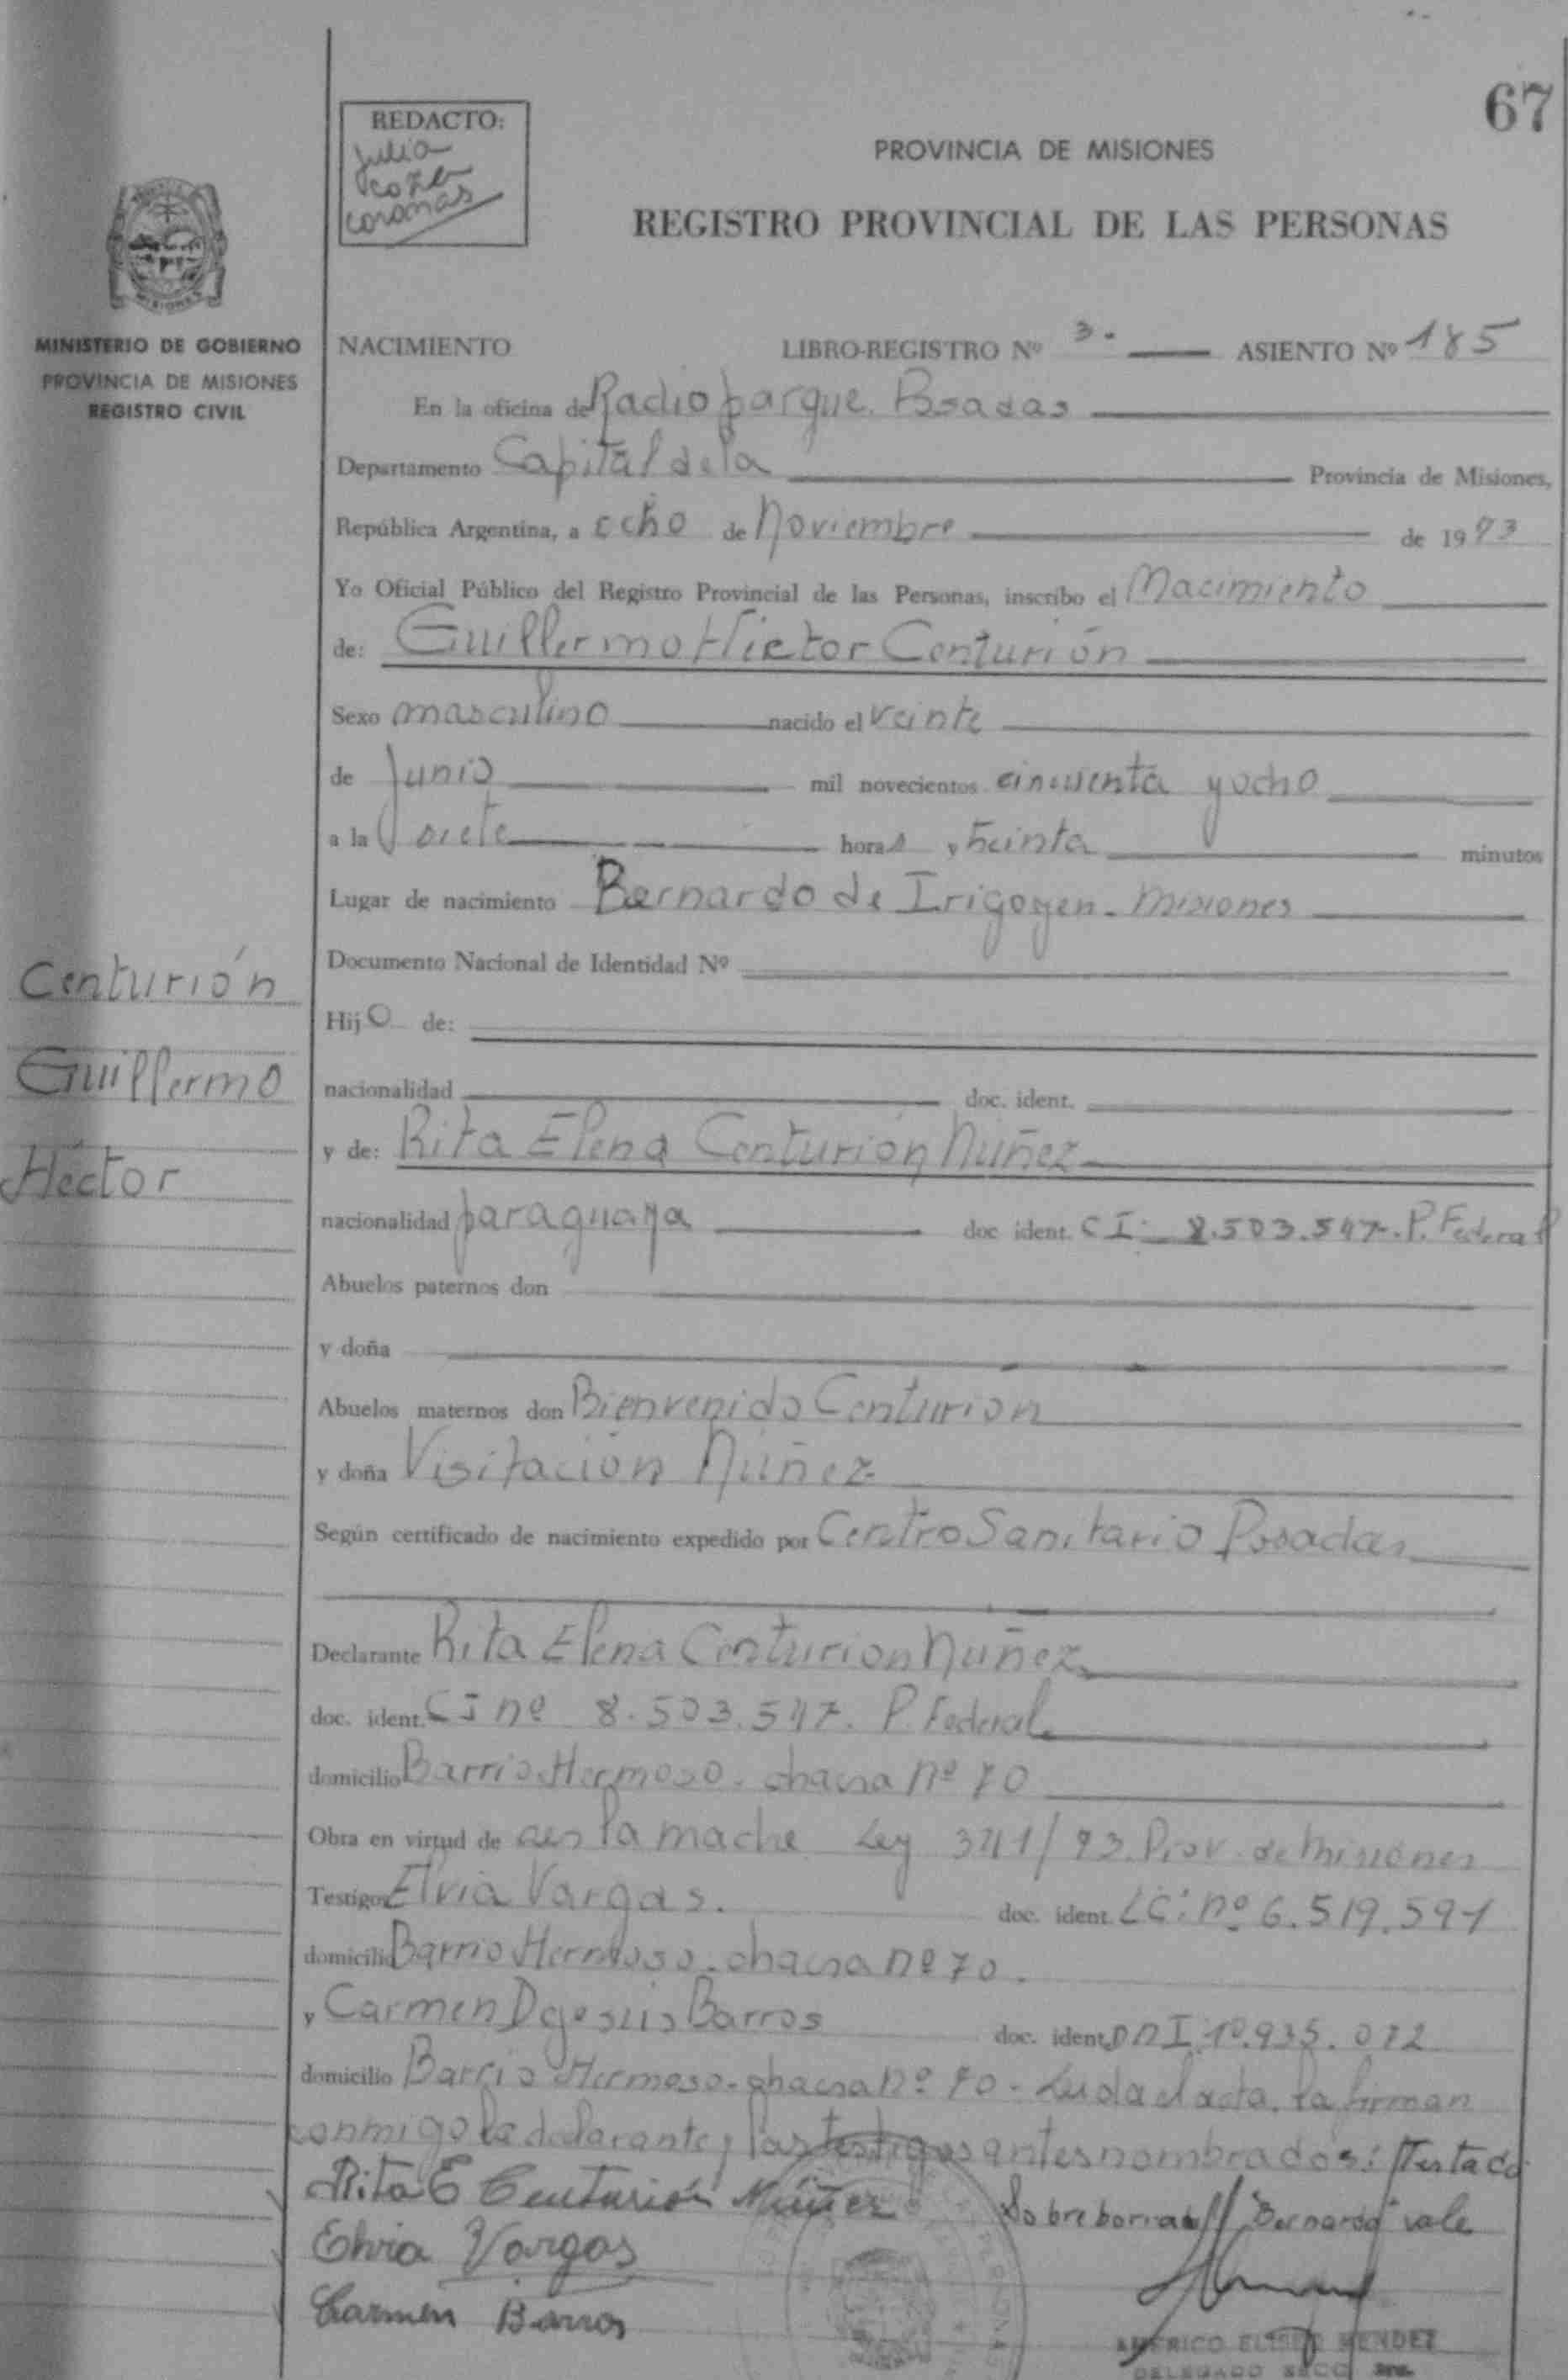 67
REDACTO:
Julia
coronas
PROVINCIA DE MISIONES
REGISTRO PROVINCIAL DE LAS PERSONAS
MISIONES
MINISTERIO DE GOBIERNO
PROVINCIA DE MISIONES
REGISTRO CIVIL
NACIMIENTO LIBRO-REGISTRO Nº 3. ASIENTO Nº 185
En la oficina de Radio parque. Posadas
Departamento Capital de la Provincia de Misiones,
República Argentina, a ocho de Noviembre de 1973
Yo Oficial Público del Registro Provincial de las Personas, inscribo el Nacimiento
de: Guillermo Héctor Centurión
Sexo masculino nacido el veinte
de Junio mil novecientos cincuenta y ocho
a la s siete horas y treinta minutos
Lugar de nacimiento Bernardo de Irigoyen - Misiones
Documento Nacional de Identidad Nº
Hijo de:
nacionalidad doc. ident.
y de: Rita Elena Centurión Núñez
nacionalidad paraguaya doc ident. CI. 8.503.547. P. Federal
Abuelos paternos don
y doña
Abuelos maternos don Bienvenido Centurion
y doña Visitación Núñez
Según certificado de nacimiento expedido por Centro Sanitario Posadas
Declarante Rita Elena Centurion Núñez
doc. ident. CI nº 8.503.547. P. Federal
domicilio Barrio Hermoso. chacra nº 70
Obra en virtud de ser la madre Ley 341/73 Prov. de Misiones
Testigos Elvia Vargas. doc. ident. LC: nº 6.519.591
domicilio Barrio Hermoso. chacra nº 70.
y Carmen Dejesús Barros doc. ident. DNI. 10.935.072
domicilio Barrio Hermoso. chacra nº 70 - Leída el acta, la firman
conmigo la declarante y los testigos antes nombrados: Testado
Sobreborrado// "Bernardo" vale
Rita E Centurión Núñez
Elvia Vargas
Carmen Barros
AMERICO ELISEO MENDEZ
DELEGADO SECC.
Centurión
Guillermo
Héctor